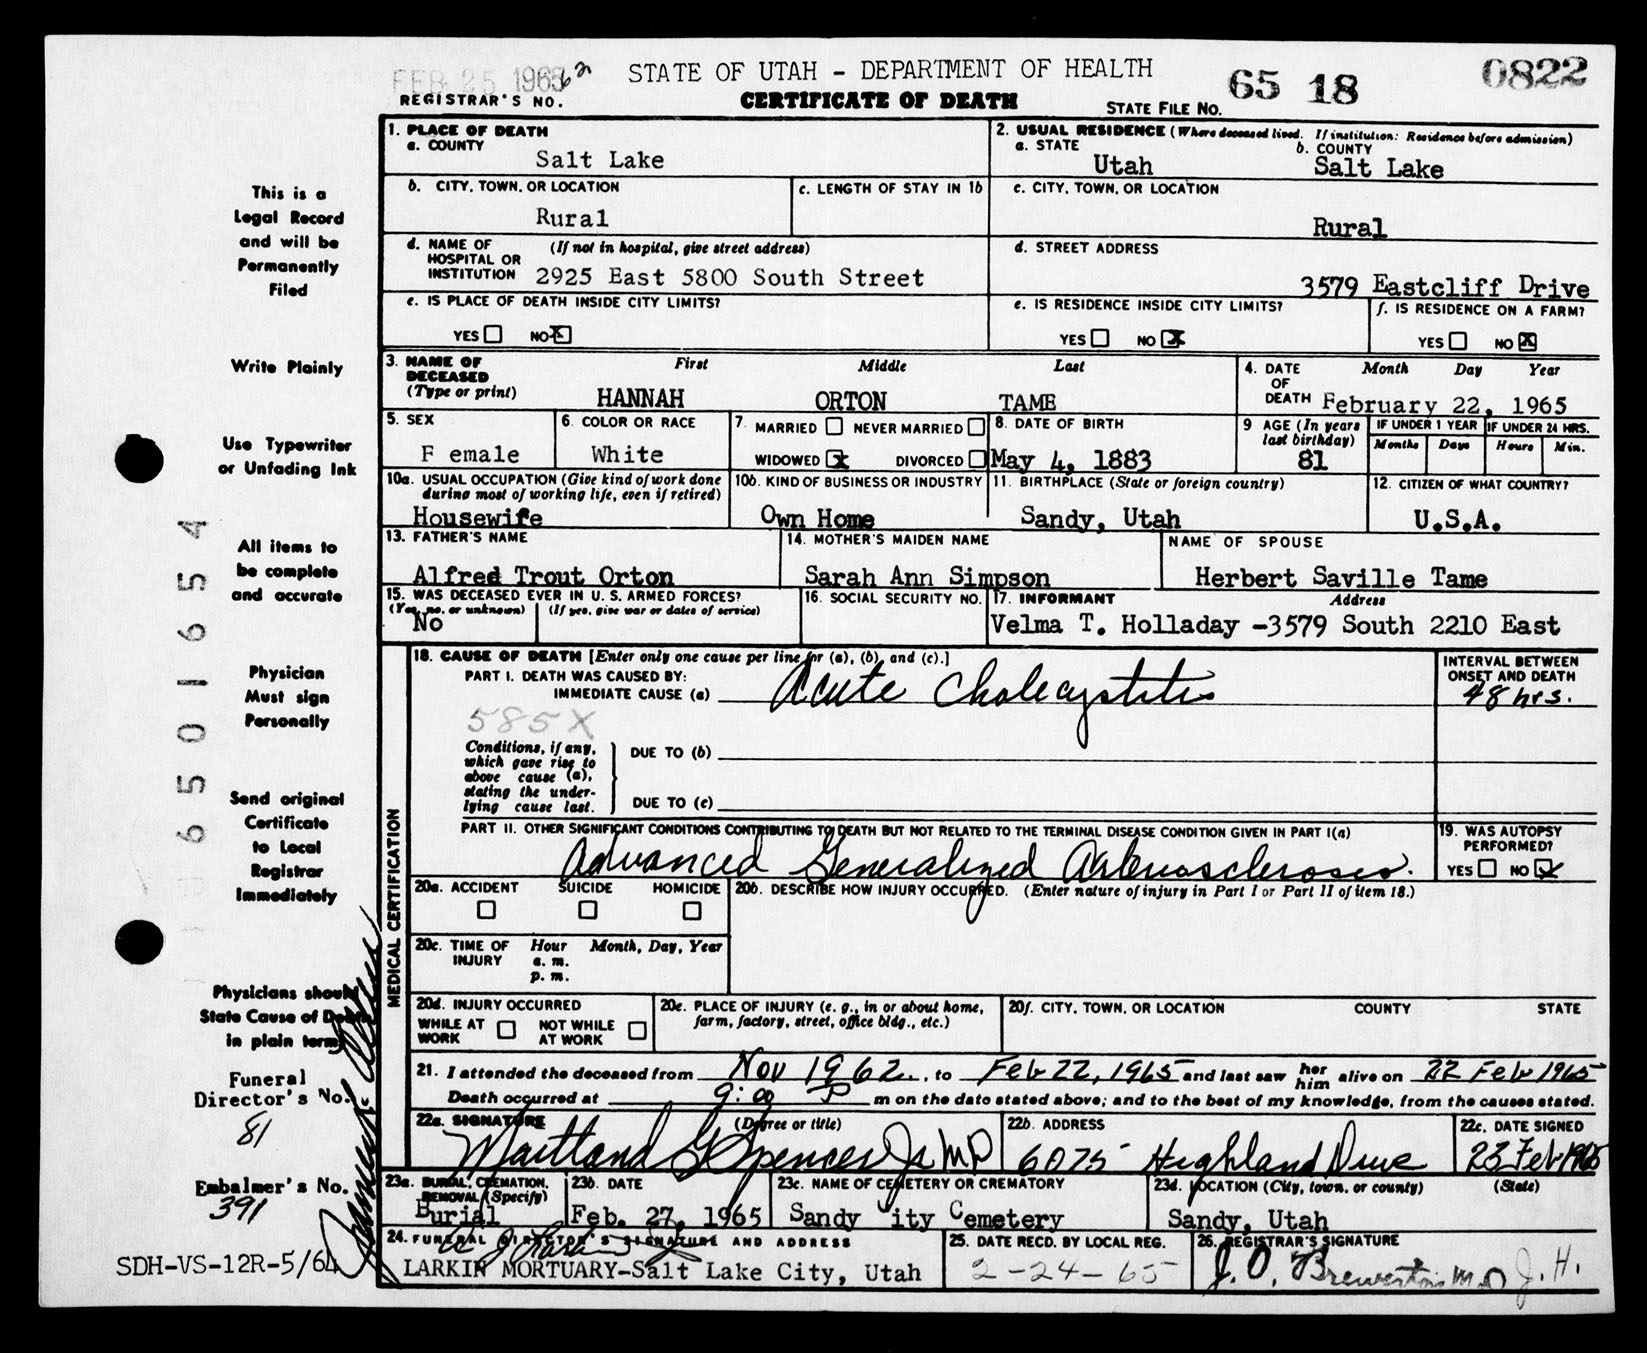 FEB 25 1965 62 STATE OF UTAH - DEPARTMENT OF HEALTH 65 18 0822
REGISTRAR'S NO. CERTIFICATE OF DEATH STATE FILE NO.
1. PLACE OF DEATH
a. COUNTY
Salt Lake
2. USUAL RESIDENCE (Where deceased lived. If institution: Residence before admission)
a. STATE b. COUNTY
Utah Salt Lake
b. CITY, TOWN, OR LOCATION c. LENGTH OF STAY IN 1b
Rural
c. CITY, TOWN, OR LOCATION
Rural
d. NAME OF HOSPITAL OR INSTITUTION (If not in hospital, give street address)
2925 East 5800 South Street
d. STREET ADDRESS
3579 Eastcliff Drive
e. IS PLACE OF DEATH INSIDE CITY LIMITS?
YES NO X
e. IS RESIDENCE INSIDE CITY LIMITS?
YES NO X
f. IS RESIDENCE ON A FARM?
YES NO X
3. NAME OF DECEASED (Type or print) First Middle Last
HANNAH ORTON TAME
4. DATE OF DEATH Month Day Year
February 22, 1965
5. SEX
F emale
6. COLOR OR RACE
White
7. MARRIED NEVER MARRIED
WIDOWED X DIVORCED
8. DATE OF BIRTH
May 4, 1883
9 AGE (In years last birthday)
81
IF UNDER 1 YEAR IF UNDER 24 HRS.
Months Days Hours Min.
10a. USUAL OCCUPATION (Give kind of work done during most of working life, even if retired)
Housewife
10b. KIND OF BUSINESS OR INDUSTRY
Own Home
11. BIRTHPLACE (State or foreign country)
Sandy, Utah
12. CITIZEN OF WHAT COUNTRY?
U.S.A.
13. FATHER'S NAME
Alfred Trout Orton
14. MOTHER'S MAIDEN NAME
Sarah Ann Simpson
NAME OF SPOUSE
Herbert Saville Tame
15. WAS DECEASED EVER IN U. S. ARMED FORCES?
(Yes, no, or unknown) (If yes, give war or dates of service)
No
16. SOCIAL SECURITY NO.
17. INFORMANT Address
Velma T. Holladay -3579 South 2210 East
MEDICAL CERTIFICATION
18. CAUSE OF DEATH [Enter only one cause per line for (a), (b), and (c).]
PART I. DEATH WAS CAUSED BY:
IMMEDIATE CAUSE (a) Acute Cholecystitis
INTERVAL BETWEEN ONSET AND DEATH
48 hrs.
585X
Conditions, if any, which gave rise to above cause (a), stating the under-lying cause last.
DUE TO (b)
DUE TO (c)
PART II. OTHER SIGNIFICANT CONDITIONS CONTRIBUTING TO DEATH BUT NOT RELATED TO THE TERMINAL DISEASE CONDITION GIVEN IN PART I(a)
Advanced Generalized Arteriosclerosis.
19. WAS AUTOPSY PERFORMED?
YES NO X
20a. ACCIDENT SUICIDE HOMICIDE
20b. DESCRIBE HOW INJURY OCCURRED. (Enter nature of injury in Part I or Part II of item 18.)
20c. TIME OF INJURY Hour Month, Day, Year
a. m.
p. m.
20d. INJURY OCCURRED
WHILE AT WORK NOT WHILE AT WORK
20e. PLACE OF INJURY (e. g., in or about home, farm, factory, street, office bldg., etc.)
20f. CITY, TOWN, OR LOCATION COUNTY STATE
21. I attended the deceased from Nov 1962, to Feb 22, 1965 and last saw her him alive on 22 Feb 1965
Death occurred at 9:00 P m on the date stated above; and to the best of my knowledge, from the causes stated.
22a. SIGNATURE (Degree or title)
Maitland G Spencer Jr MD
22b. ADDRESS
6075 Highland Drive
22c. DATE SIGNED
23 Feb 1965
23a. BURIAL, CREMATION, REMOVAL (Specify)
Burial
23b. DATE
Feb. 27, 1965
23c. NAME OF CEMETERY OR CREMATORY
Sandy ity Cemetery
23d. LOCATION (City, town, or county) (State)
Sandy, Utah
24. FUNERAL DIRECTOR'S SIGNATURE AND ADDRESS
LARKIN MORTUARY-Salt Lake City, Utah
25. DATE RECD. BY LOCAL REG.
2-24-65
26. REGISTRAR'S SIGNATURE
J. O. Brewerton M.D J.H.
This is a
Legal Record
and will be
Permanently
Filed
Write Plainly
Use Typewriter
or Unfading Ink
All items to
be complete
and accurate
Physician
Must sign
Personally
Send original
Certificate
to Local
Registrar
Immediately
Physicians should
State Cause of Death
in plain terms
Funeral
Director's No.
81
Embalmer's No.
391
SDH-VS-12R-5/64
6501654